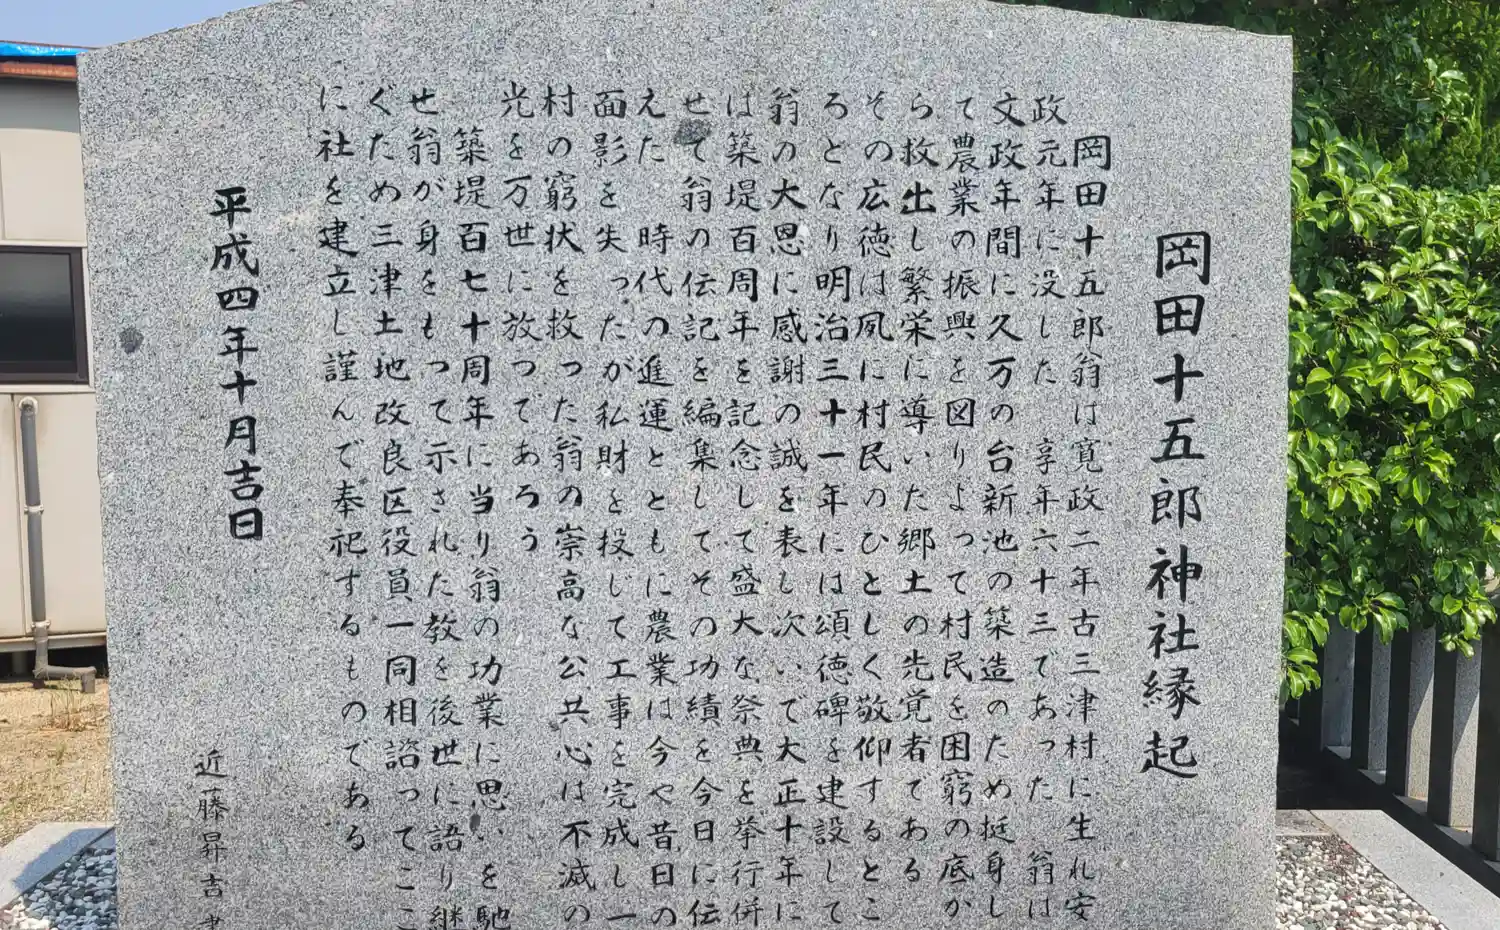 岡田十五郎神社縁起
岡田十五郎翁は寛政二年古三津村に生れ安
政元年に没した 享年六十三であった 翁は
文政年間に久万の台新池の築造のため挺身し
て農業の振興を図りよって村民を困窮の底か
ら救出し繁栄に導いた郷土の先覚者である
その広徳は夙に村民のひとしく敬仰するとこ
ろとなり明治三十一年には頌徳碑を建設して
翁の大恩に感謝の誠を表し次いで大正十年に
は築堤百周年を記念して盛大な祭典を挙行併
せて翁の伝記を編集してその功績を今日に伝
えた 時代の進運とともに農業は今や昔日の
面影を失ったが私財を投じて工事を完成し一
村の窮状を救った翁の崇高な公共心は不滅の
光を万世に放つであろう
築堤百七十周年に当り翁の功業に思いを馳
せ翁が身をもって示された教を後世に語り継
ぐため三津土地改良区役員一同相諮ってここ
に社を建立し謹んで奉祀するものである
平成四年十月吉日
近藤昇吉書